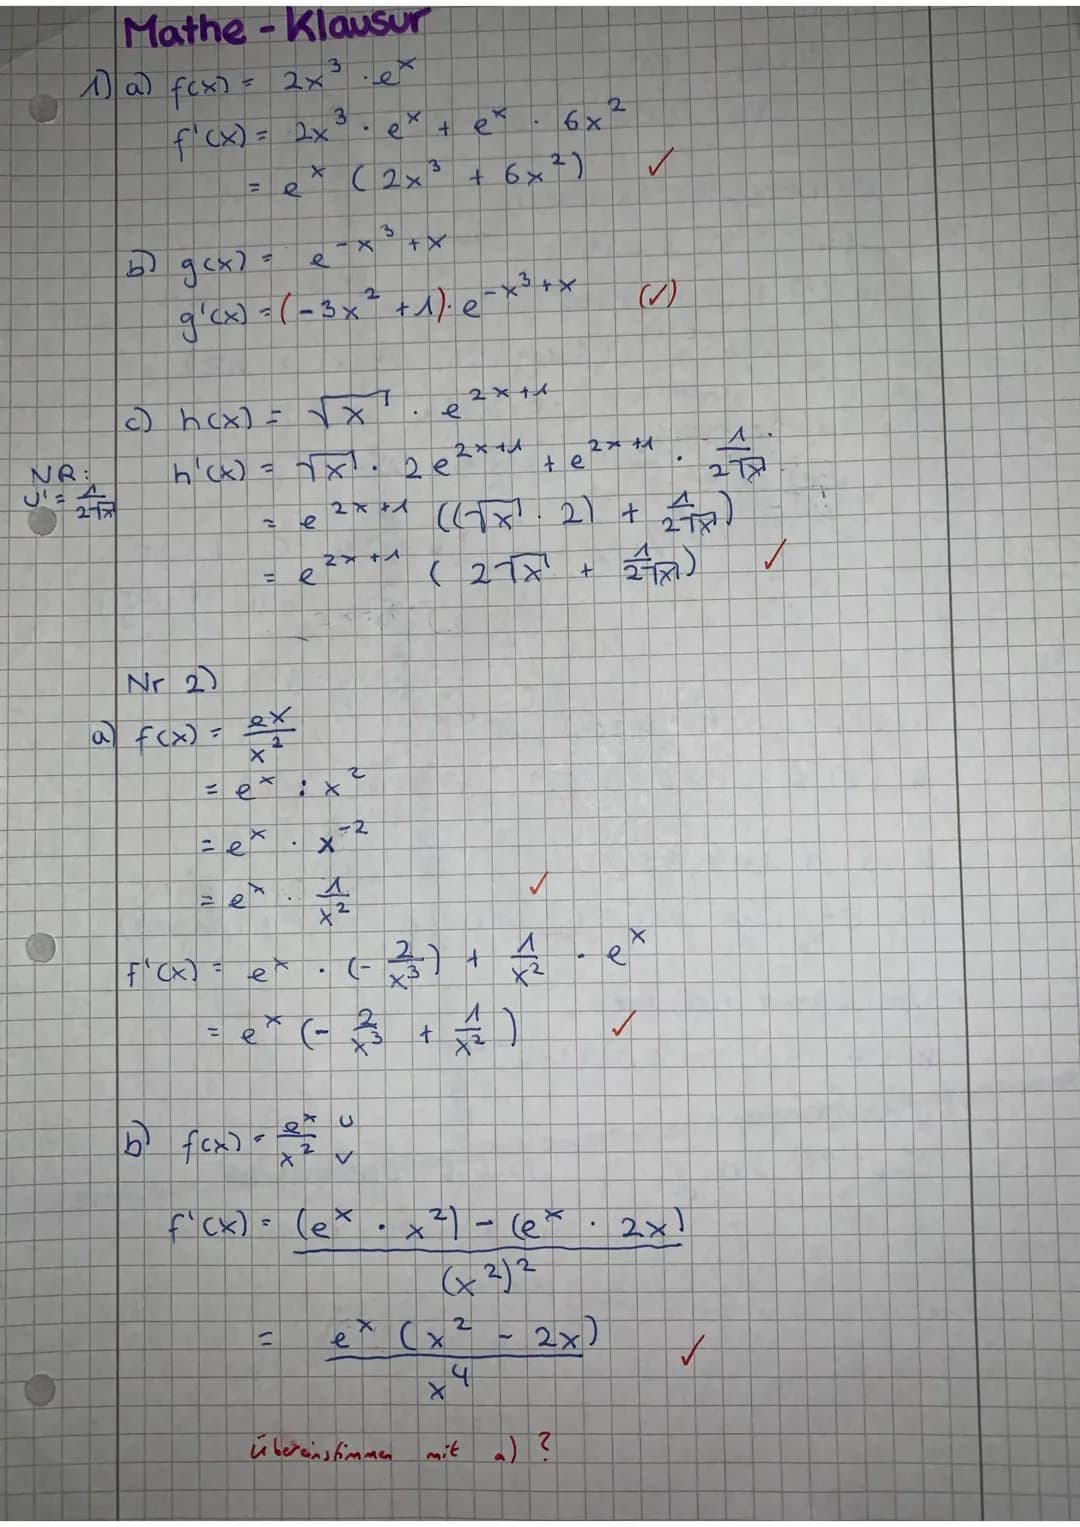 Mathe - Klausur
1) a) f(x) = 2x³ · eˣ
f'(x) = 2x³ · eˣ + eˣ · 6x²
= eˣ (2x³ + 6x²) ✓
b) g(x) = e^(-x³+x)
g'(x) = (-3x² + 1) · e^(-x³+x) (✓)
c) h(x) = √x · e^(2x+1)
NR: h'(x) = √x · 2e^(2x+1) + e^(2x+1) · 1/(2√x)
u' = 1/(2√x)
= e^(2x+1) ((√x · 2) + 1/(2√x))
= e^(2x+1) (2√x + 1/(2√x)) ✓
Nr 2)
a) f(x) = eˣ/x²
= eˣ : x²
= eˣ · x⁻²
= eˣ · 1/x² ✓
f'(x) = eˣ · (-2/x³) + 1/x² · eˣ
= eˣ (-2/x³ + 1/x²) ✓
b) f(x) = eˣ/x² u v
f'(x) = ((eˣ · x²) - (eˣ · 2x))/(x²)²
= eˣ (x² - 2x)/x⁴ ✓
übereinstimmen mit a) ?